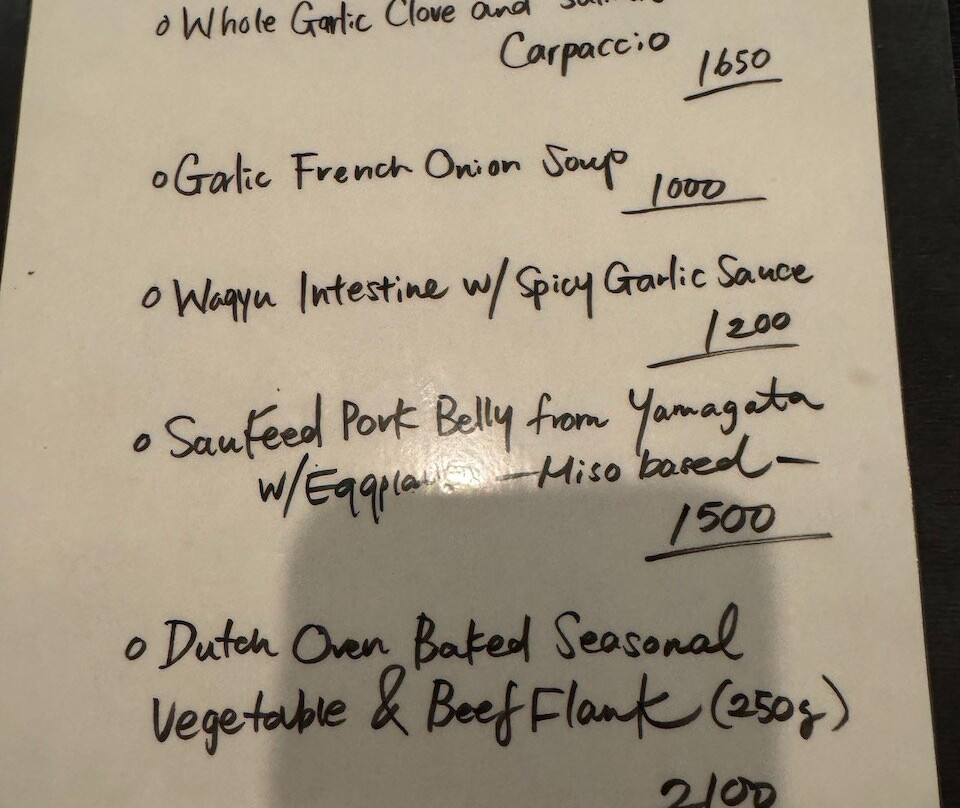 o Whole Garlic Clove and
Carpaccio
1650
o Garlic French Onion Soup
1000
o Wagyu Intestine w/ Spicy Garlic Sauce
1200
o Sauteed Pork Belly from Yamagata
w/ —Miso based—
1500
o Dutch Oven Baked Seasonal
Vegetable & Beef Flank (250g)
2100